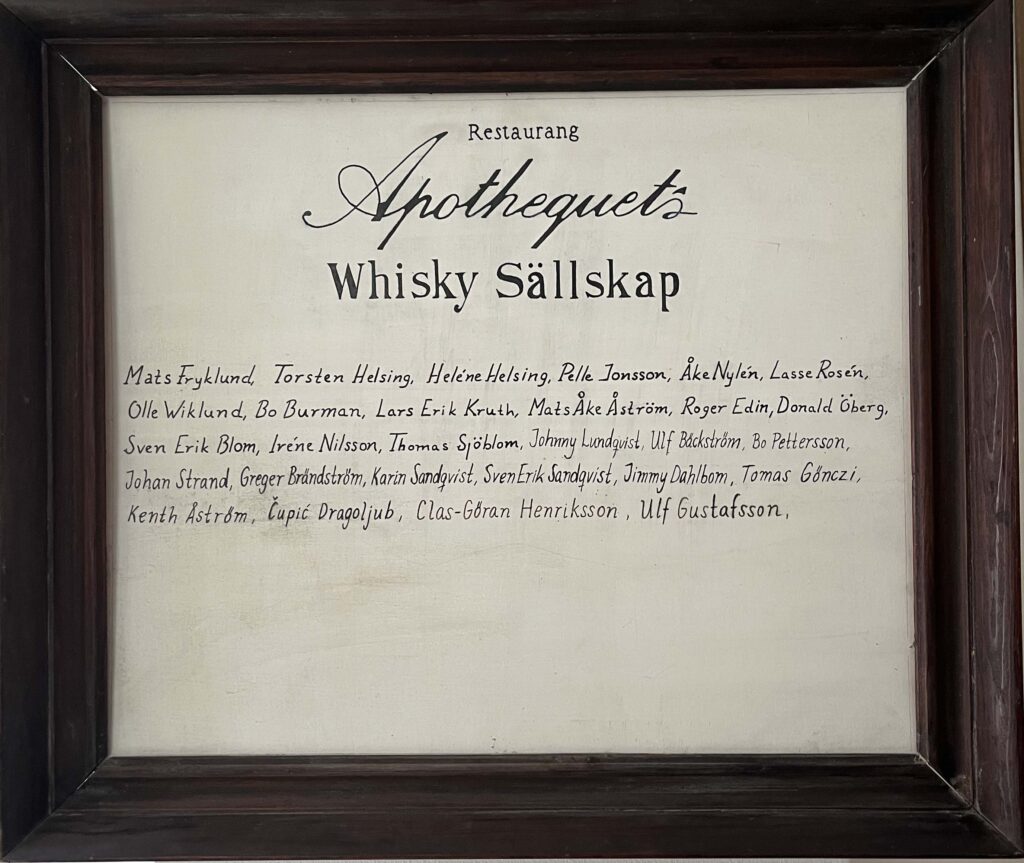 Restaurang
Apothequet's
Whisky Sällskap
Mats Fryklund, Torsten Helsing, Heléne Helsing, Pelle Jonsson, Åke Nylén, Lasse Rosén,
Olle Wiklund, Bo Burman, Lars Erik Kruth, Mats Åke Åström, Roger Edin, Donald Öberg,
Sven Erik Blom, Iréne Nilsson, Thomas Sjöblom, Johnny Lundqvist, Ulf Bäckström, Bo Pettersson,
Johan Strand, Greger Brändström, Karin Sandqvist, Sven Erik Sandqvist, Jimmy Dahlbom, Tomas Gönczi,
Kenth Åström, Čupić Dragoljub, Clas-Göran Henriksson, Ulf Gustafsson,